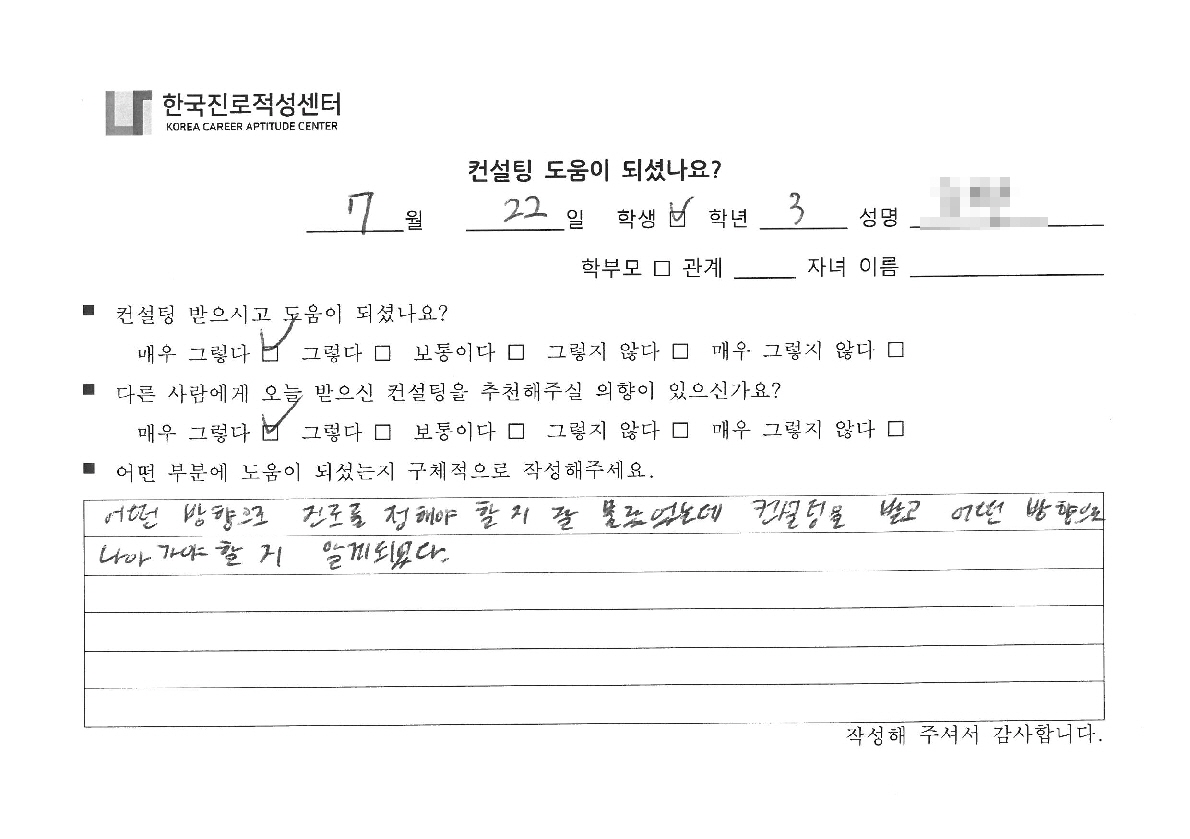 한국진로적성센터
KOREA CAREER APTITUDE CENTER
컨설팅 도움이 되셨나요?
7월 22일 학생 ☑ 학년 3 성명
학부모 □ 관계 자녀 이름
■ 컨설팅 받으시고 도움이 되셨나요?
매우 그렇다 ☑ 그렇다 □ 보통이다 □ 그렇지 않다 □ 매우 그렇지 않다 □
■ 다른 사람에게 오늘 받으신 컨설팅을 추천해주실 의향이 있으신가요?
매우 그렇다 ☑ 그렇다 □ 보통이다 □ 그렇지 않다 □ 매우 그렇지 않다 □
■ 어떤 부분에 도움이 되셨는지 구체적으로 작성해주세요.
어떤 방향으로 진로를 정해야 할지 잘 몰랐었는데 컨설팅을 받고 어떤 방향으로
나아가야 할지 알게되었다.
작성해 주셔서 감사합니다.